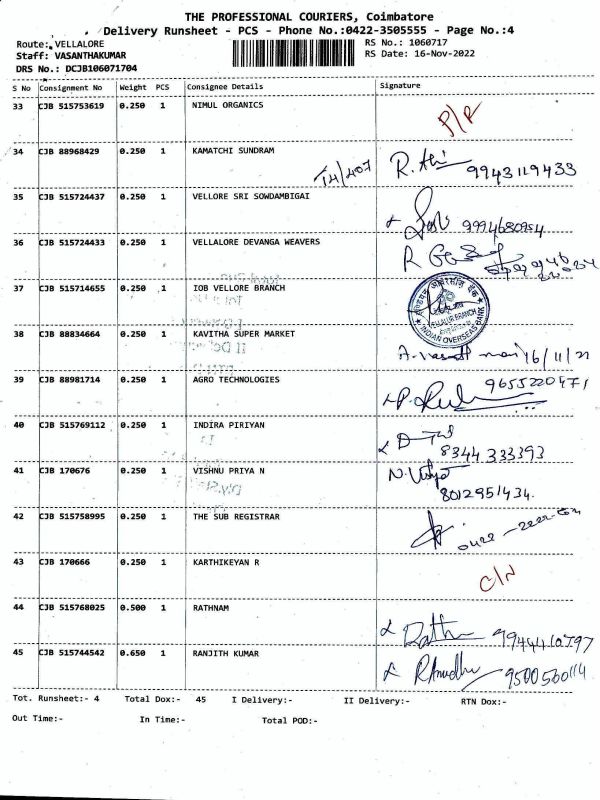 THE PROFESSIONAL COURIERS, Coimbatore
Delivery Runsheet - PCS - Phone No.:0422-3505555 - Page No.:4
Route: VELLALORE
RS No.: 1060717
Staff: VASANTHAKUMAR
RS Date: 16-Nov-2022
DRS No.: DCJB106071704
S No Consignment No Weight PCS Consignee Details Signature
33 CJB 515753619 0.250 1 NIMUL ORGANICS
P/R
34 CJB 88968429 0.250 1 KAMATCHI SUNDRAM
T4/407 9943119433
35 CJB 515724437 0.250 1 VELLORE SRI SOWDAMBIGAI
9994680954
36 CJB 515724433 0.250 1 VELLALORE DEVANGA WEAVERS
37 CJB 515714655 0.250 1 IOB VELLORE BRANCH
VELLALUR BRANCH
INDIAN OVERSEAS BANK
38 CJB 88834664 0.250 1 KAVITHA SUPER MARKET
16/11/22
39 CJB 88981714 0.250 1 AGRO TECHNOLOGIES
40 CJB 515769112 0.250 1 INDIRA PIRIYAN
8344 333393
41 CJB 170676 0.250 1 VISHNU PRIYA N
8012951434.
42 CJB 515758995 0.250 1 THE SUB REGISTRAR
43 CJB 170666 0.250 1 KARTHIKEYAN R
C/N
44 CJB 515768025 0.500 1 RATHNAM
9944410797
45 CJB 515744542 0.650 1 RANJITH KUMAR
9500560114
Tot. Runsheet:- 4 Total Dox:- 45 I Delivery:- II Delivery:- RTN Dox:-
Out Time:- In Time:- Total POD:-